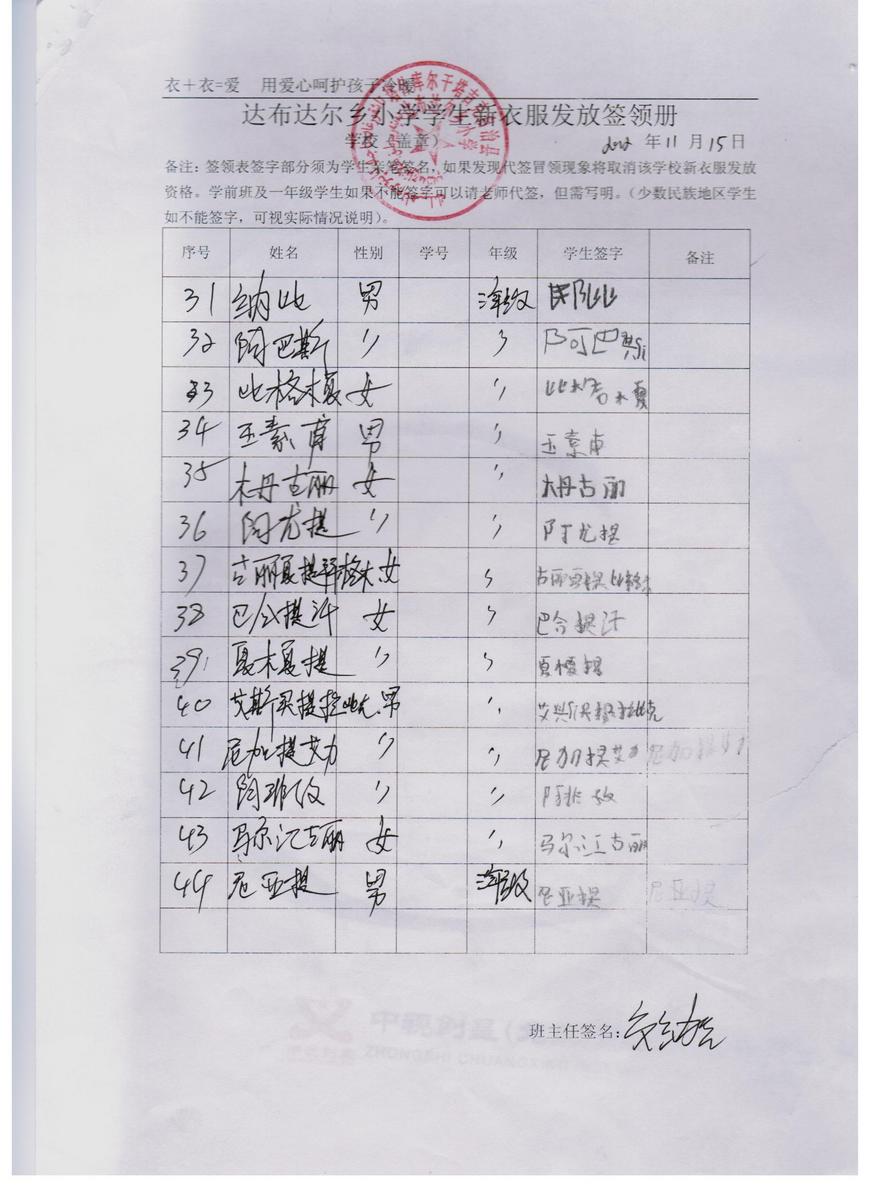 衣+衣=爱 用爱心呵护孩子冷暖
达布达尔乡小学学生新衣服发放签领册
学校(盖章) 2012 年 11 月 15 日
备注:签领表签字部分须为学生亲笔签名,如果发现代签冒领现象将取消该学校新衣服发放
资格。学前班及一年级学生如果不能签字可以请老师代签,但需写明。(少数民族地区学生
如不能签字,可视实际情况说明)。
序号 姓名 性别 学号 年级 学生签字 备注
31 纳比 男 年级
32 阿巴斯 〃 〃 阿巴斯
33 比格木夏 女 〃 比格木夏
34 玉素甫 男 〃
35 木丹古丽 女 〃 木丹古丽
36 阿尤提 〃 〃 阿尤提
37 古丽夏提 女 〃 古丽夏提
38 巴合提汗 女 〃 巴合提汗
39 夏木夏提 〃 〃
40 艾斯买提 男 〃
41 尼加提艾力 〃 〃 尼加提艾力 尼加提艾力
42 〃 〃
43 马尔江古丽 女 〃 马尔江古丽
44 尼亚提 男 年级 尼亚提 尼亚提
班主任签名:
中视创星(
ZHONGSHI CHUANGXING